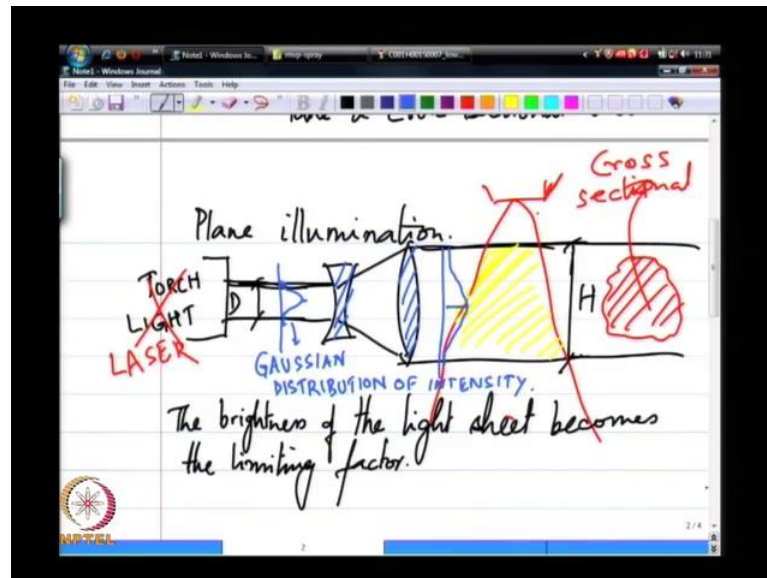 Note1 - Windows Jo...
mvp spray
11:31
Note1 - Windows Journal
File Edit View Insert Actions Tools Help
Cross
sectional
Plane illumination.
TORCH
LIGHT
LASER
D
H
GAUSSIAN
DISTRIBUTION OF INTENSITY.
The brightness of the light sheet becomes
the limiting factor.
2 / 4
2
NPTEL